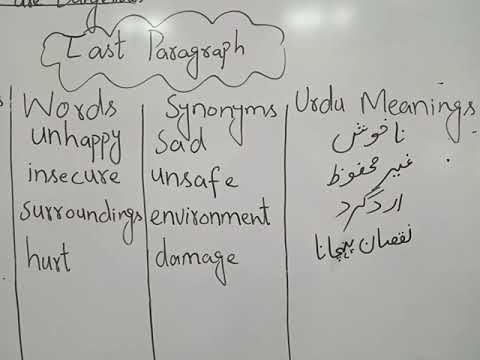 Last Paragraph
Words Synonyms Urdu Meanings
unhappy sad ناخوش
insecure unsafe غیر محفوظ
surroundings environment اردگرد
hurt damage نقصان پہچانا